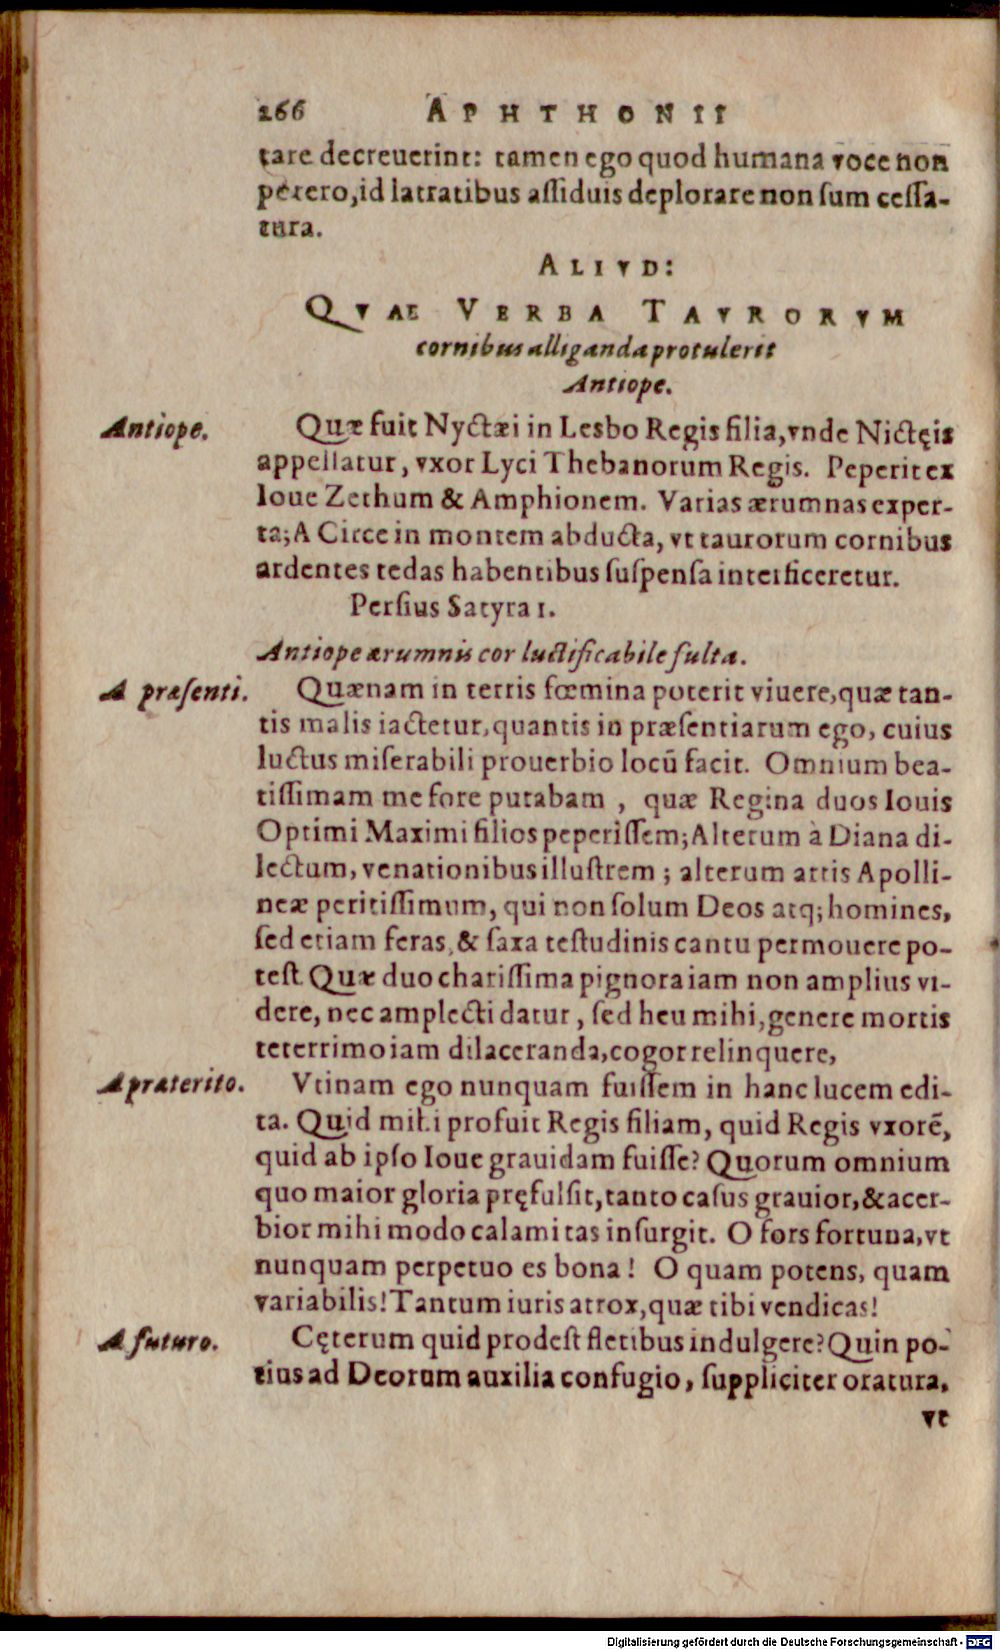 266 APHTHONII
tare decreuerint: tamen ego quod humana voce non
petero, id latratibus aſſiduis deplorare non ſum ceſſa-
tura.
ALIVD:
QVAE VERBA TAVRORVM
cornibus alliganda protulerit
Antiope.
Antiope. Quæ fuit Nyctæi in Lesbo Regis filia, vnde Nictęis
appellatur, vxor Lyci Thebanorum Regis. Peperit ex
Ioue Zethum & Amphionem. Varias ærumnas exper-
ta; A Circe in montem abducta, vt taurorum cornibus
ardentes tedas habentibus ſuſpenſa interficeretur.
Perſius Satyra 1.
Antiope ærumnis cor luctificabile fulta.
A præſenti. Quænam in terris fœmina poterit viuere, quæ tan-
tis malis iactetur, quantis in præſentiarum ego, cuius
luctus miſerabili prouerbio locũ facit. Omnium bea-
tiſſimam me fore putabam , quæ Regina duos Iouis
Optimi Maximi filios peperiſſem; Alterum à Diana di-
lectum, venationibus illuſtrem ; alterum artis Apolli-
neæ peritiſſimum, qui non ſolum Deos atq; homines,
ſed etiam feras, & ſaxa teſtudinis cantu permouere po-
teſt. Quæ duo chariſſima pignora iam non amplius vi-
dere, nec amplecti datur, ſed heu mihi, genere mortis
teterrimo iam dilaceranda, cogor relinquere,
A præterito. Vtinam ego nunquam fuiſſem in hanc lucem edi-
ta. Quid mihi profuit Regis filiam, quid Regis vxorẽ,
quid ab ipſo Ioue grauidam fuiſſe? Quorum omnium
quo maior gloria pręfulſit, tanto caſus grauior, & acer-
bior mihi modo calamitas inſurgit. O fors fortuna, vt
nunquam perpetuo es bona! O quam potens, quam
variabilis! Tantum iuris atrox, quæ tibi vendicas!
A futuro. Cęterum quid prodeſt fletibus indulgere? Quin po-
tius ad Deorum auxilia confugio, ſuppliciter oratura,
vt
Digitalisierung gefördert durch die Deutsche Forschungsgemeinschaft - DFG